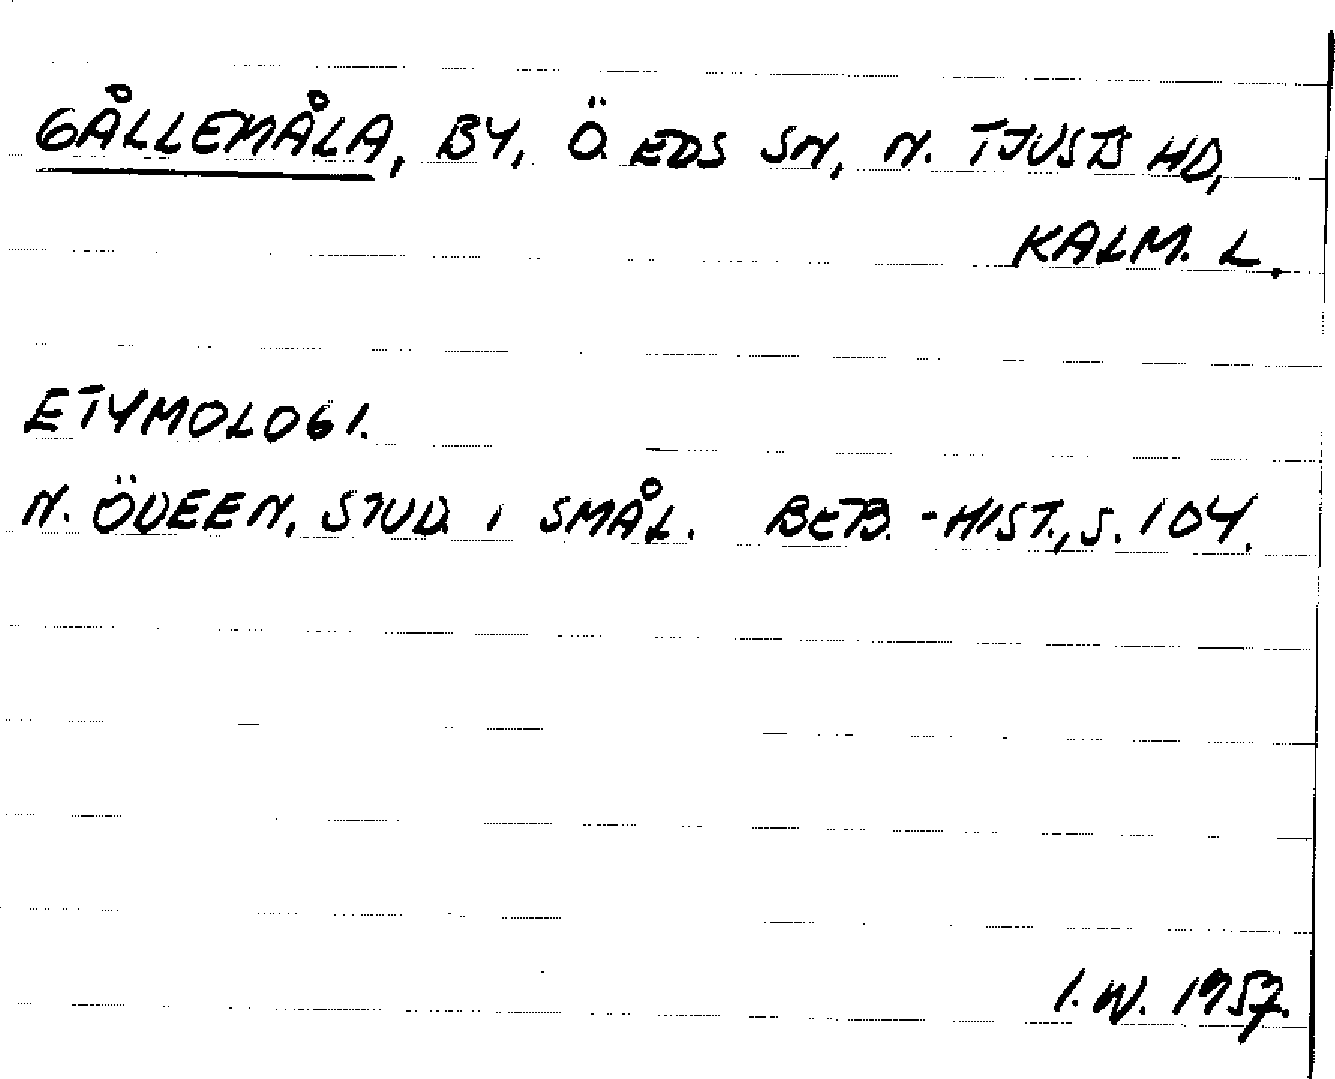 GÅLLEMÅLA, BY, Ö. EDS SN, N. TJUSTS HD,
KALM. L.
ETYMOLOGI.
N. ÖDEEN, STUD. I SMÅL. BEB. -HIST., S. 104.
I. W. 1957.